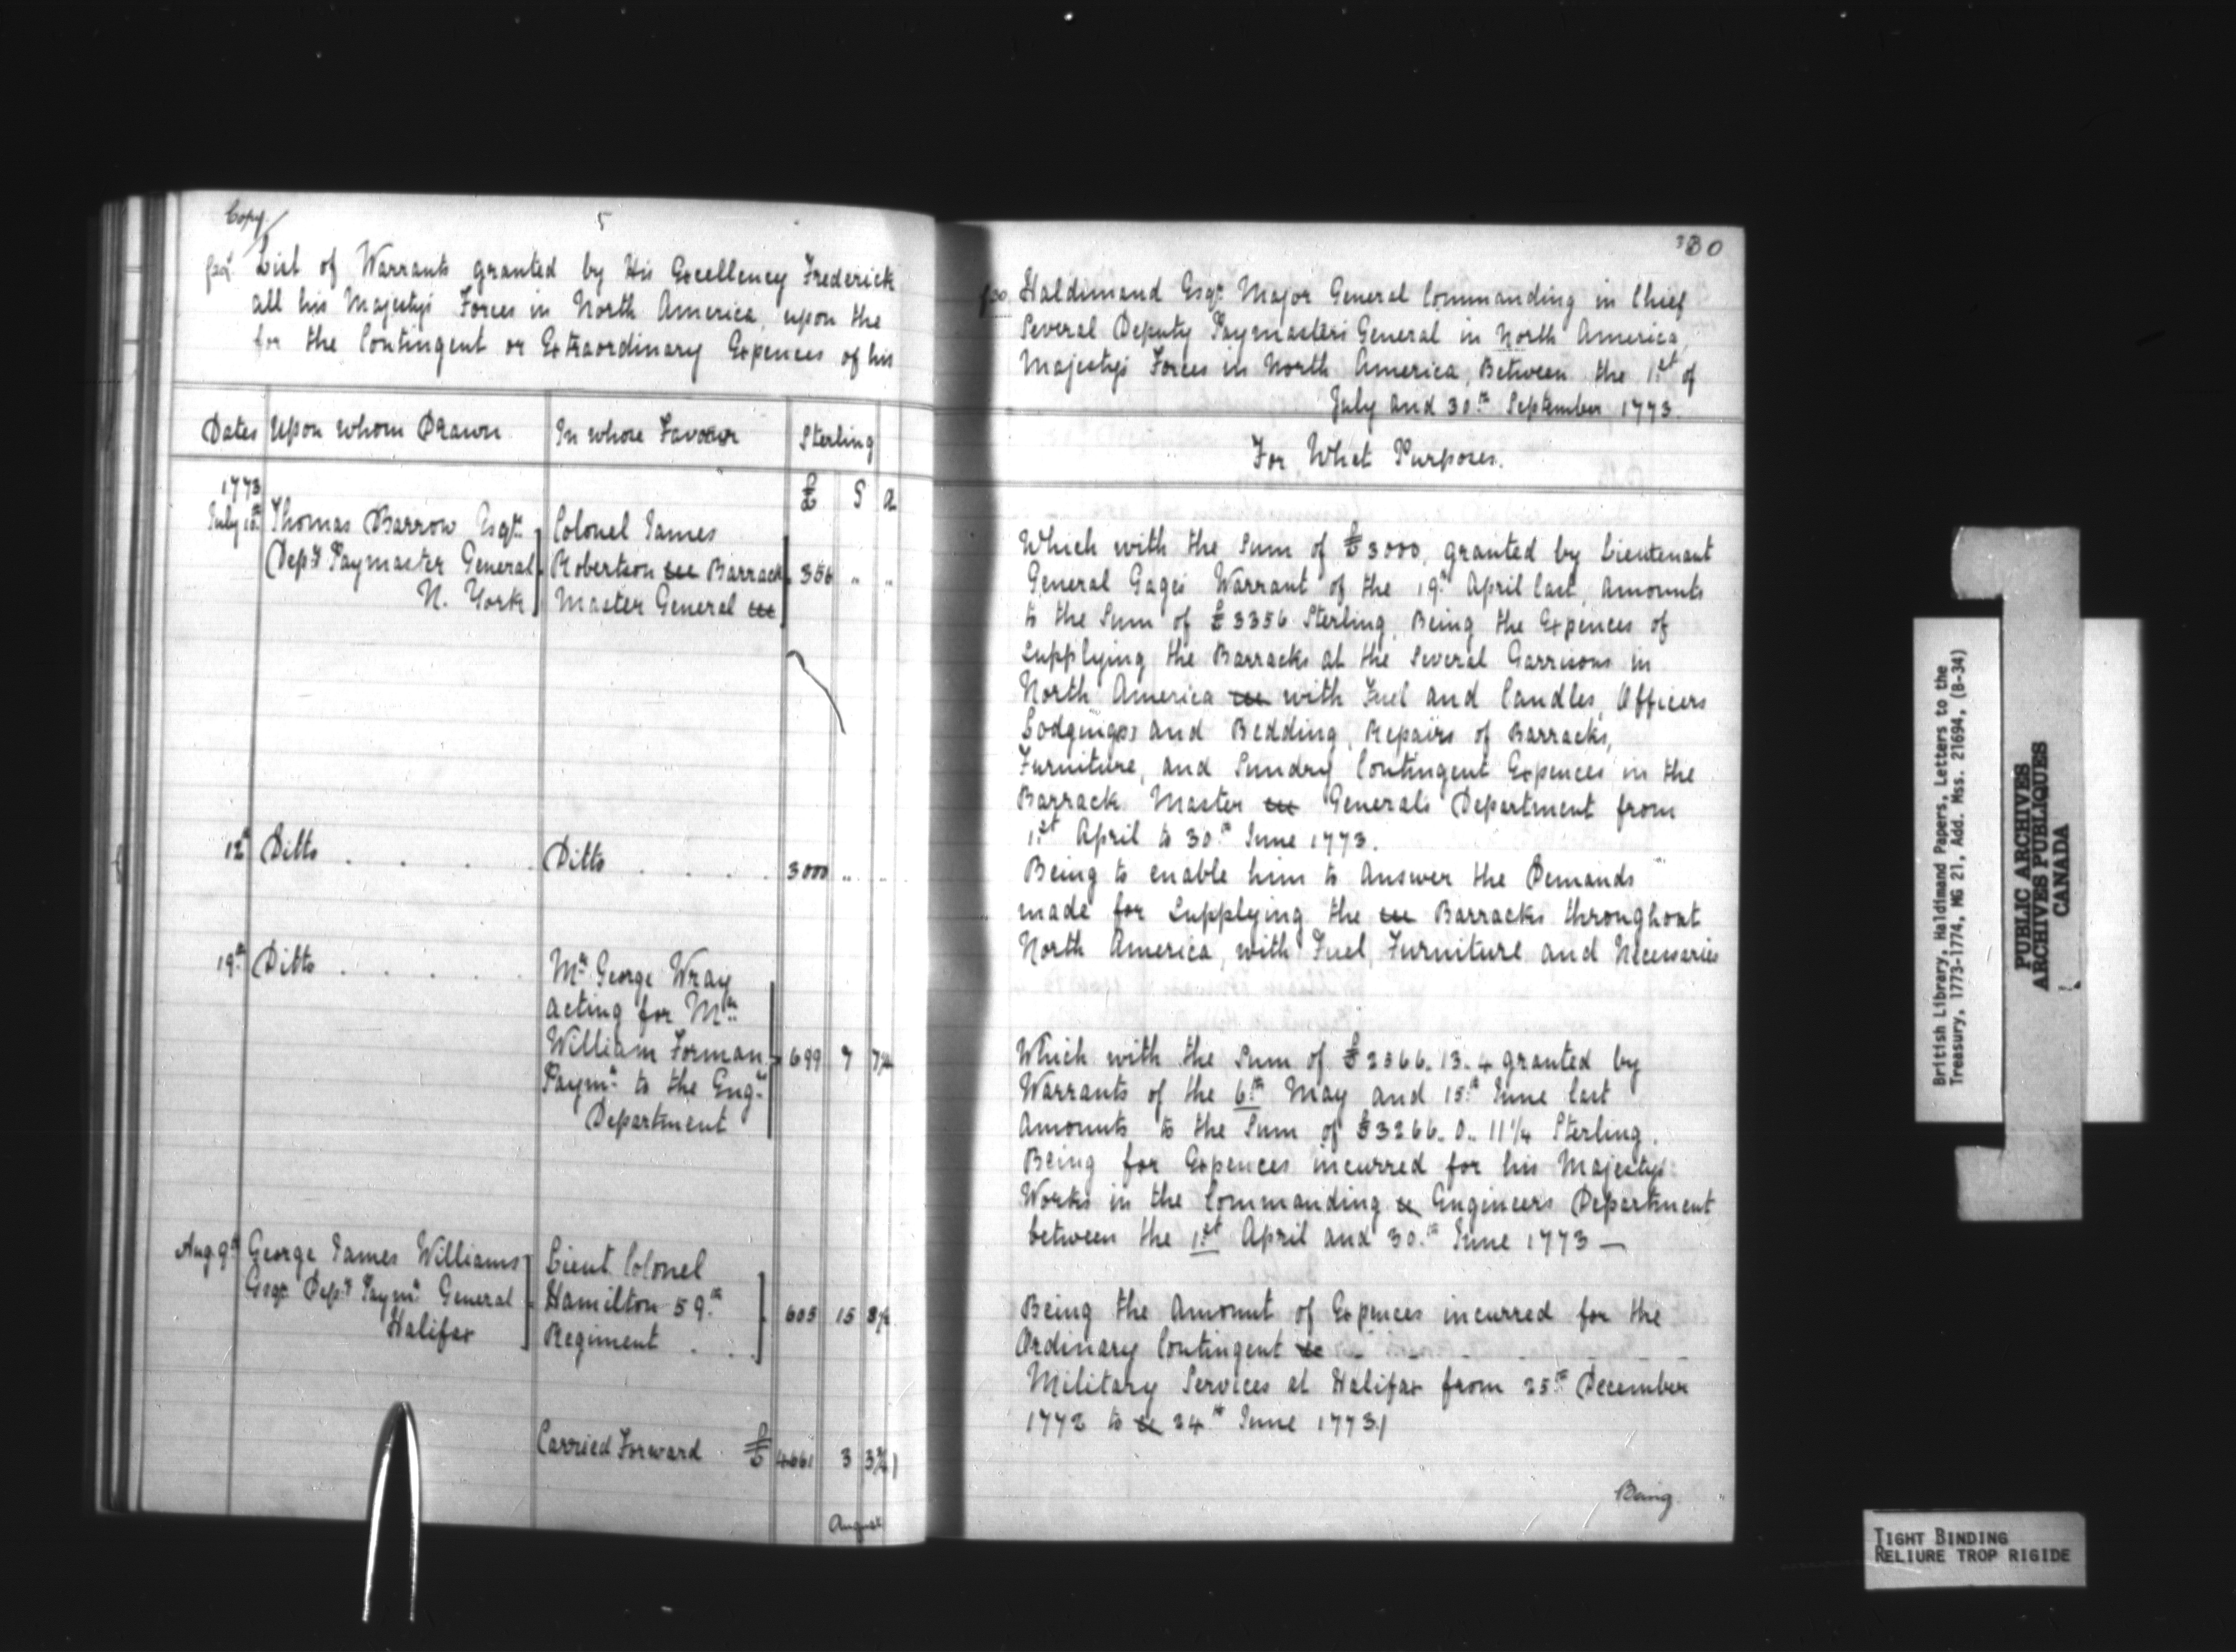 Copy/
5
List of Warrants granted by His Excellency Frederick
all his Majestys Forces in North America, upon the
for the Contingent or Extraordinary Expences of his
Dates Upon whom Drawn In whose Favour Sterling
1773 £ S d
July 10th Thomas Barrow Esqr. Colonel James
Depy Paymaster General Robertson Barrack 356 " "
N. York Master General
12th Ditto . . . . Ditto . . . . 3000 " "
19th Ditto . . . . Mr. George Wray
acting for Mr.
William Forman 699 7 7¼
Paymr. to the Engr.
Department
Aug. 9th George James Williams Lieut Colonel
Esqr. Depy Paymr. General Hamilton 59th 605 15 8½
Halifax Regiment . .
Carried Forward £ 4661 3 3¾
August
30
Haldimand Esqr. Major General Commanding in Chief
Several Deputy Paymasters General in North America,
Majestys Forces in North America, Between the 1st of
July and 30th September 1773.
For What Purposes.
Which with the Sum of £3000, granted by Lieutenant
General Gages Warrant of the 19th April last, amounts
to the Sum of £3356 Sterling, Being the Expences of
Supplying the Barracks at the Several Garrisons in
North America with Fuel and Candles, Officers
Lodgings and Bedding, Repairs of Barracks,
Furniture, and Sundry Contingent Expences in the
Barrack Master Generals Department from
1st April to 30th June 1773.
Being to enable him to answer the Demands
made for Supplying the Barracks throughout
North America, with Fuel, Furniture and Necessaries
Which with the Sum of £2566.13.4 granted by
Warrants of the 6th May and 15th June last
Amounts to the Sum of £3266.0.11¼ Sterling.
Being for Expences incurred for his Majestys
Works in the Commanding Engineers Department
between the 1st April and 30th June 1773 —
Being the Amount of Expences incurred for the
Ordinary Contingent
Military Services at Halifax from 25th December
1772 to 24th June 1773/
Being
British Library, Haldimand Papers, Letters to the
Treasury, 1773-1774, MG 21, Add. Mss. 21694, (B-34)
PUBLIC ARCHIVES
ARCHIVES PUBLIQUES
CANADA
TIGHT BINDING
RELIURE TROP RIGIDE